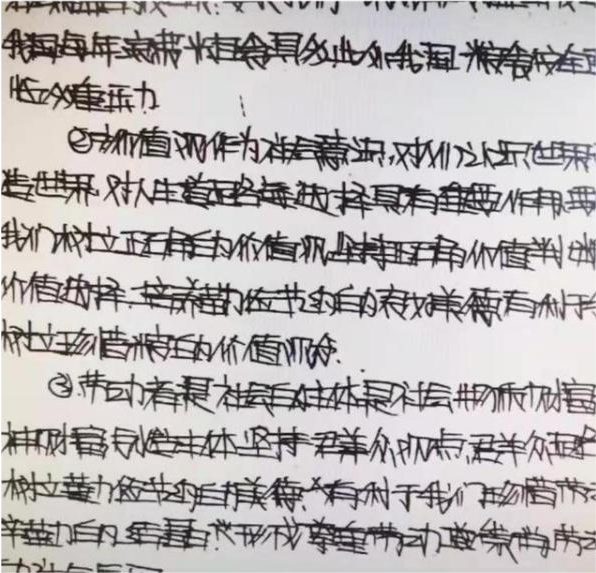 我国每年浪费粮食具多此外我国粮食仍在面
临众重压力
②价值观作为社会意识,对人们认识世界
造世界,对人生道路的选择具有重要作用要
我们树立正确的价值观坚持正确价值判断
价值选择.培养勤俭节约的良好美德有利于
树立珍惜粮食的价值观念.
③劳动者是社会的主体是社会物质财富
神财富创造主体坚持群众观点,群众路
树立勤俭节约的美德.有利于我们珍惜劳
辛勤的结晶.形成尊重劳动